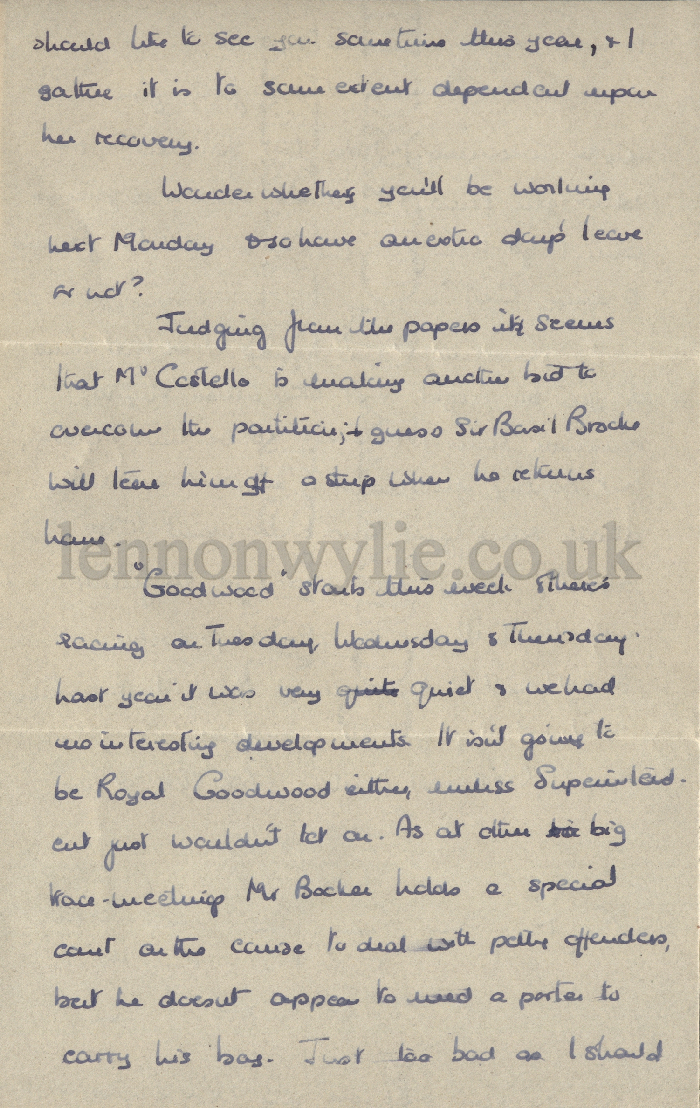 should like to see you sometime this year, & I
gather it is to some extent dependent upon
her recovery.
Wonder whether you'll be working
next Monday & so have an extra day's leave
or not?
Judging from the papers it seems
that Mr Costello is making another bid to
overcome the partition; I guess Sir Basil Brooke
will tear him off a strip when he returns
home.
lennonwylie.co.uk
"Goodwood" starts this week & there's
racing on Tuesday, Wednesday & Thursday.
Last year it was very quite quiet & we had
no interesting developments. It isn't going to
be Royal Goodwood either, unless Superintend-
ent just wouldn't let on. As at other big
race-meetings Mr Booker holds a special
court on the course to deal with petty offenders,
but he doesn't appear to need a porter to
carry his bag. Just too bad as I should